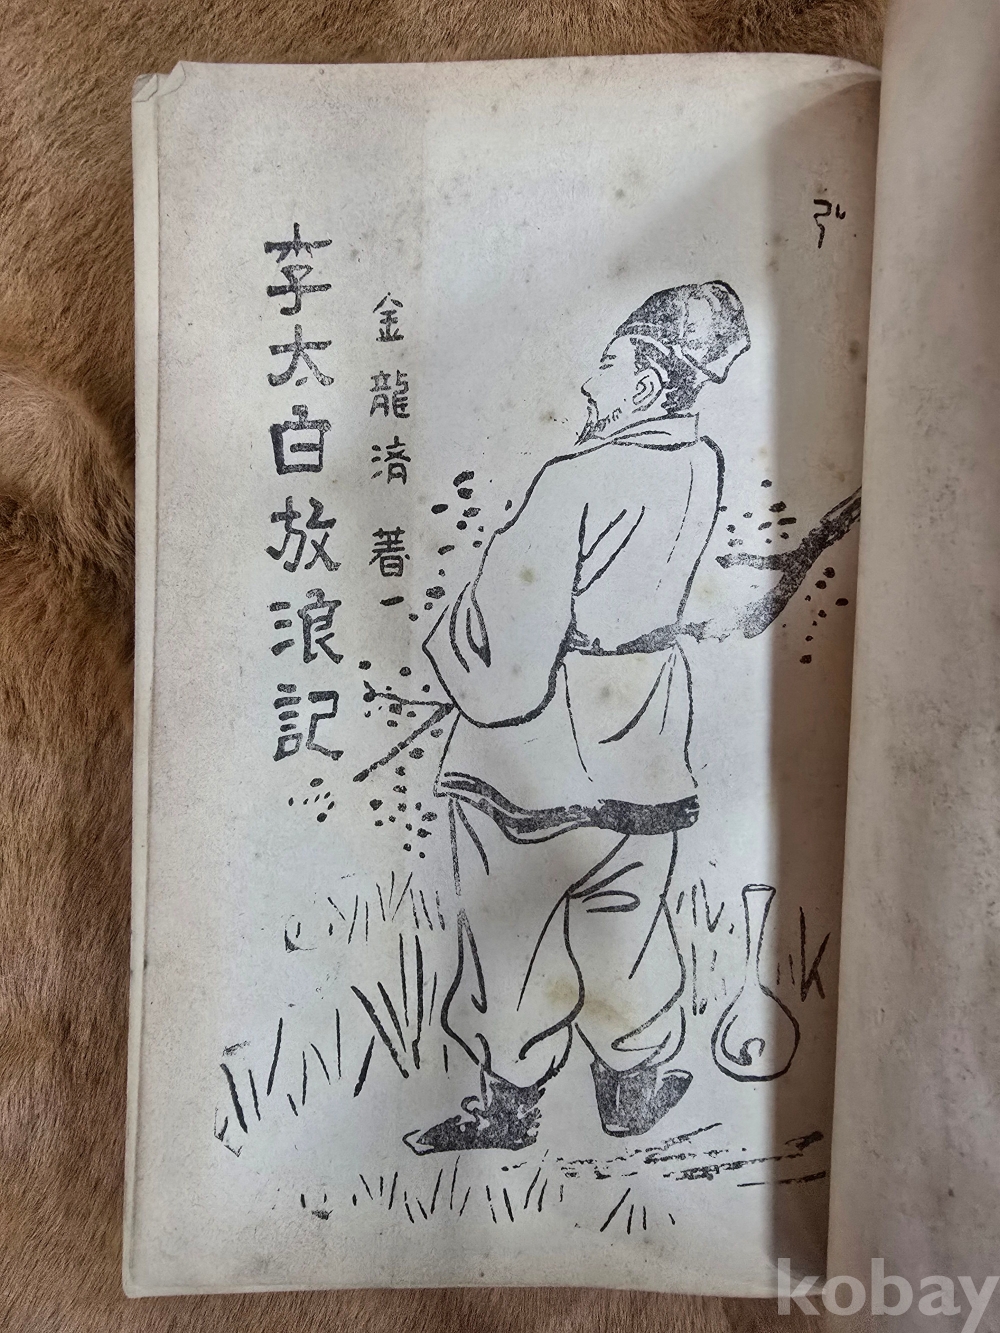 李太白放浪記
金龍済 著
kobay